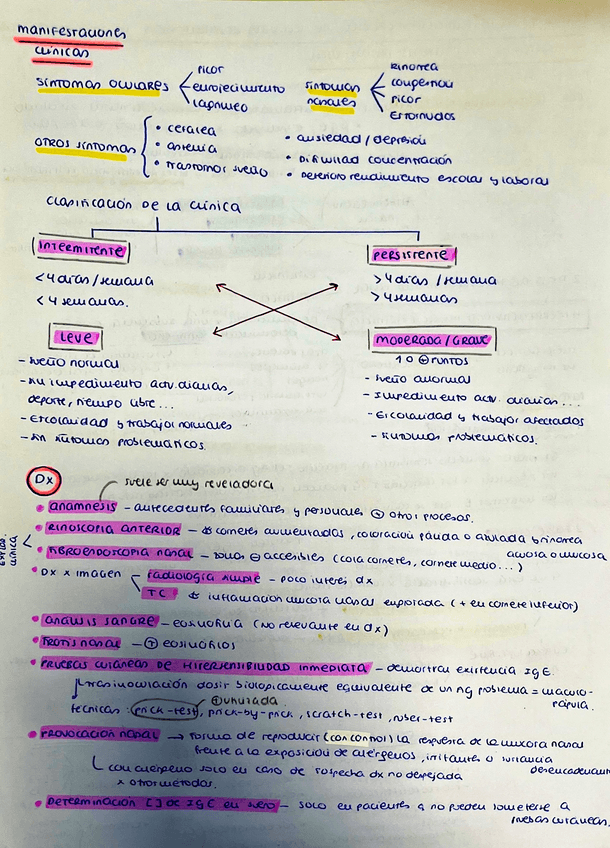 MANIFESTACIONES
CLÍNICAS
SÍNTOMAS OCULARES
PICOR
ENROJECIMIENTO
LAGRIMEO
SÍNTOMAS NASALES
RINORREA
CONGESTIÓN
PICOR
ESTORNUDOS
OTROS SÍNTOMAS
• cefalea
• astenia
• trastornos sueño
• ansiedad/depresión
• Dificultad concentración
• Deterioro rendimiento escolar y laboral
CLASIFICACIÓN DE LA CLÍNICA
INTERMITENTE
< 4 días/semana
< 4 semanas.
PERSISTENTE
> 4 días/semana
> 4 semanas
LEVE
- sueño normal
- No impedimento act. diarias,
deporte, tiempo libre...
- Escolaridad y trabajo normales
- Sin síntomas problemáticos.
MODERADA/GRAVE
1 o ⊕ puntos
- sueño anormal
- Impedimento act. diarias...
- Escolaridad y trabajo afectados
- síntomas problemáticos.
Dx
suele ser muy reveladora
• ANAMNESIS - antecedentes familiares y personales ⊕ otros procesos.
explor. clínica
• RINOSCOPIA ANTERIOR - cornetes aumentados, coloración pálida o azulada y rinorrea
acuosa o mucosa
• FIBROENDOSCOPIA NASAL - zonas ⊖ accesibles (cola cornetes, cornete medio...)
• Dx x imagen
radiología simple - poco interés dx
TC inflamación mucosa nasal explorada (+ en cornete inferior)
• ANÁLISIS SANGRE - eosinofilia (no relevante en dx)
• FROTIS NASAL - ⊕ eosinófilos
• PRUEBAS CUTÁNEAS DE HIPERSENSIBILIDAD INMEDIATA - demostrar existencia IgE.
tras inoculación dosis biológicamente equivalente de un Ag problema = maculo-
pápula.
⊕ utilizada
técnicas: prick-test, prick-by-prick, scratch-test, rubber-test
• PROVOCACIÓN NASAL → forma de reproducir (con control) la respuesta de la mucosa nasal
frente a la exposición de alérgenos, irritantes o sustancia
desencadenante
con alérgeno solo en caso de sospecha dx no despejada
x otros métodos.
• DETERMINACIÓN [ ] de IgE en suero - solo en pacientes q no pueden someterse a
pruebas cutáneas.